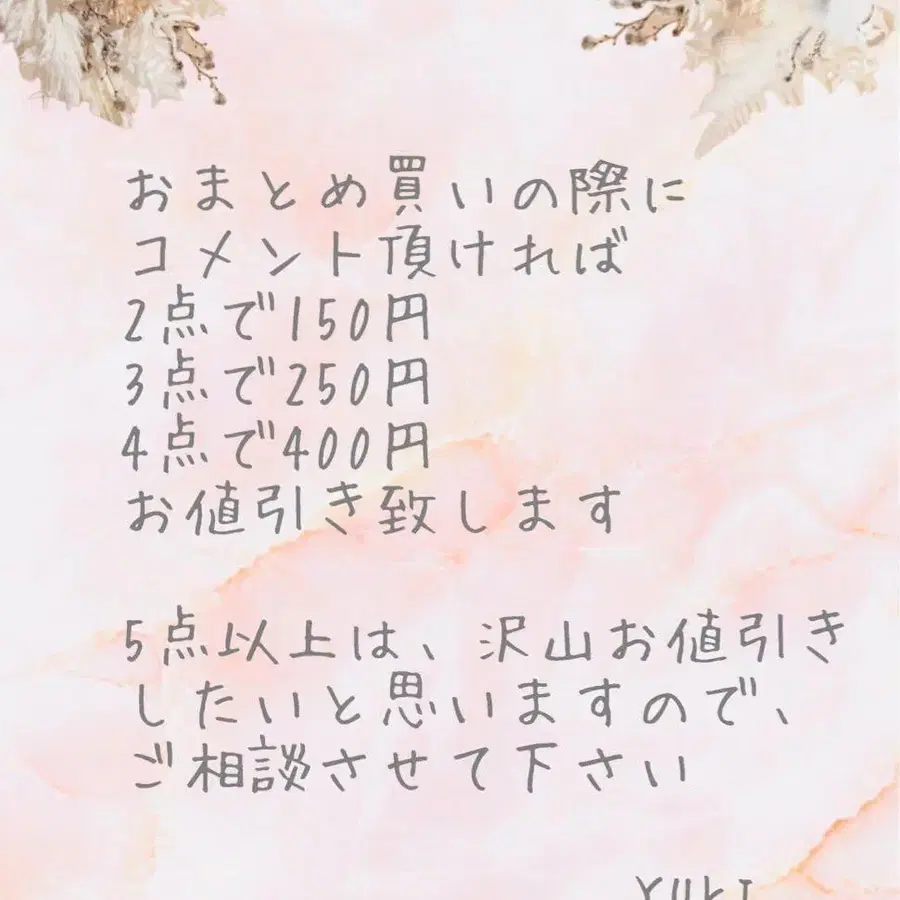 おまとめ買いの際に
コメント頂ければ
2点で150円
3点で250円
4点で400円
お値引き致します
5点以上は、沢山お値引き
したいと思いますので、
ご相談させて下さい